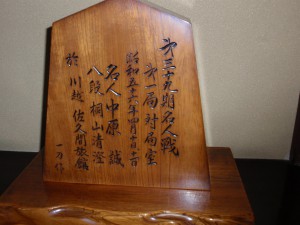 第三十九期名人戦
第一局対局室
昭和五十六年四月十日十一日
名人中原誠
八段桐山清澄
於川越佐久間旅館
一刀作